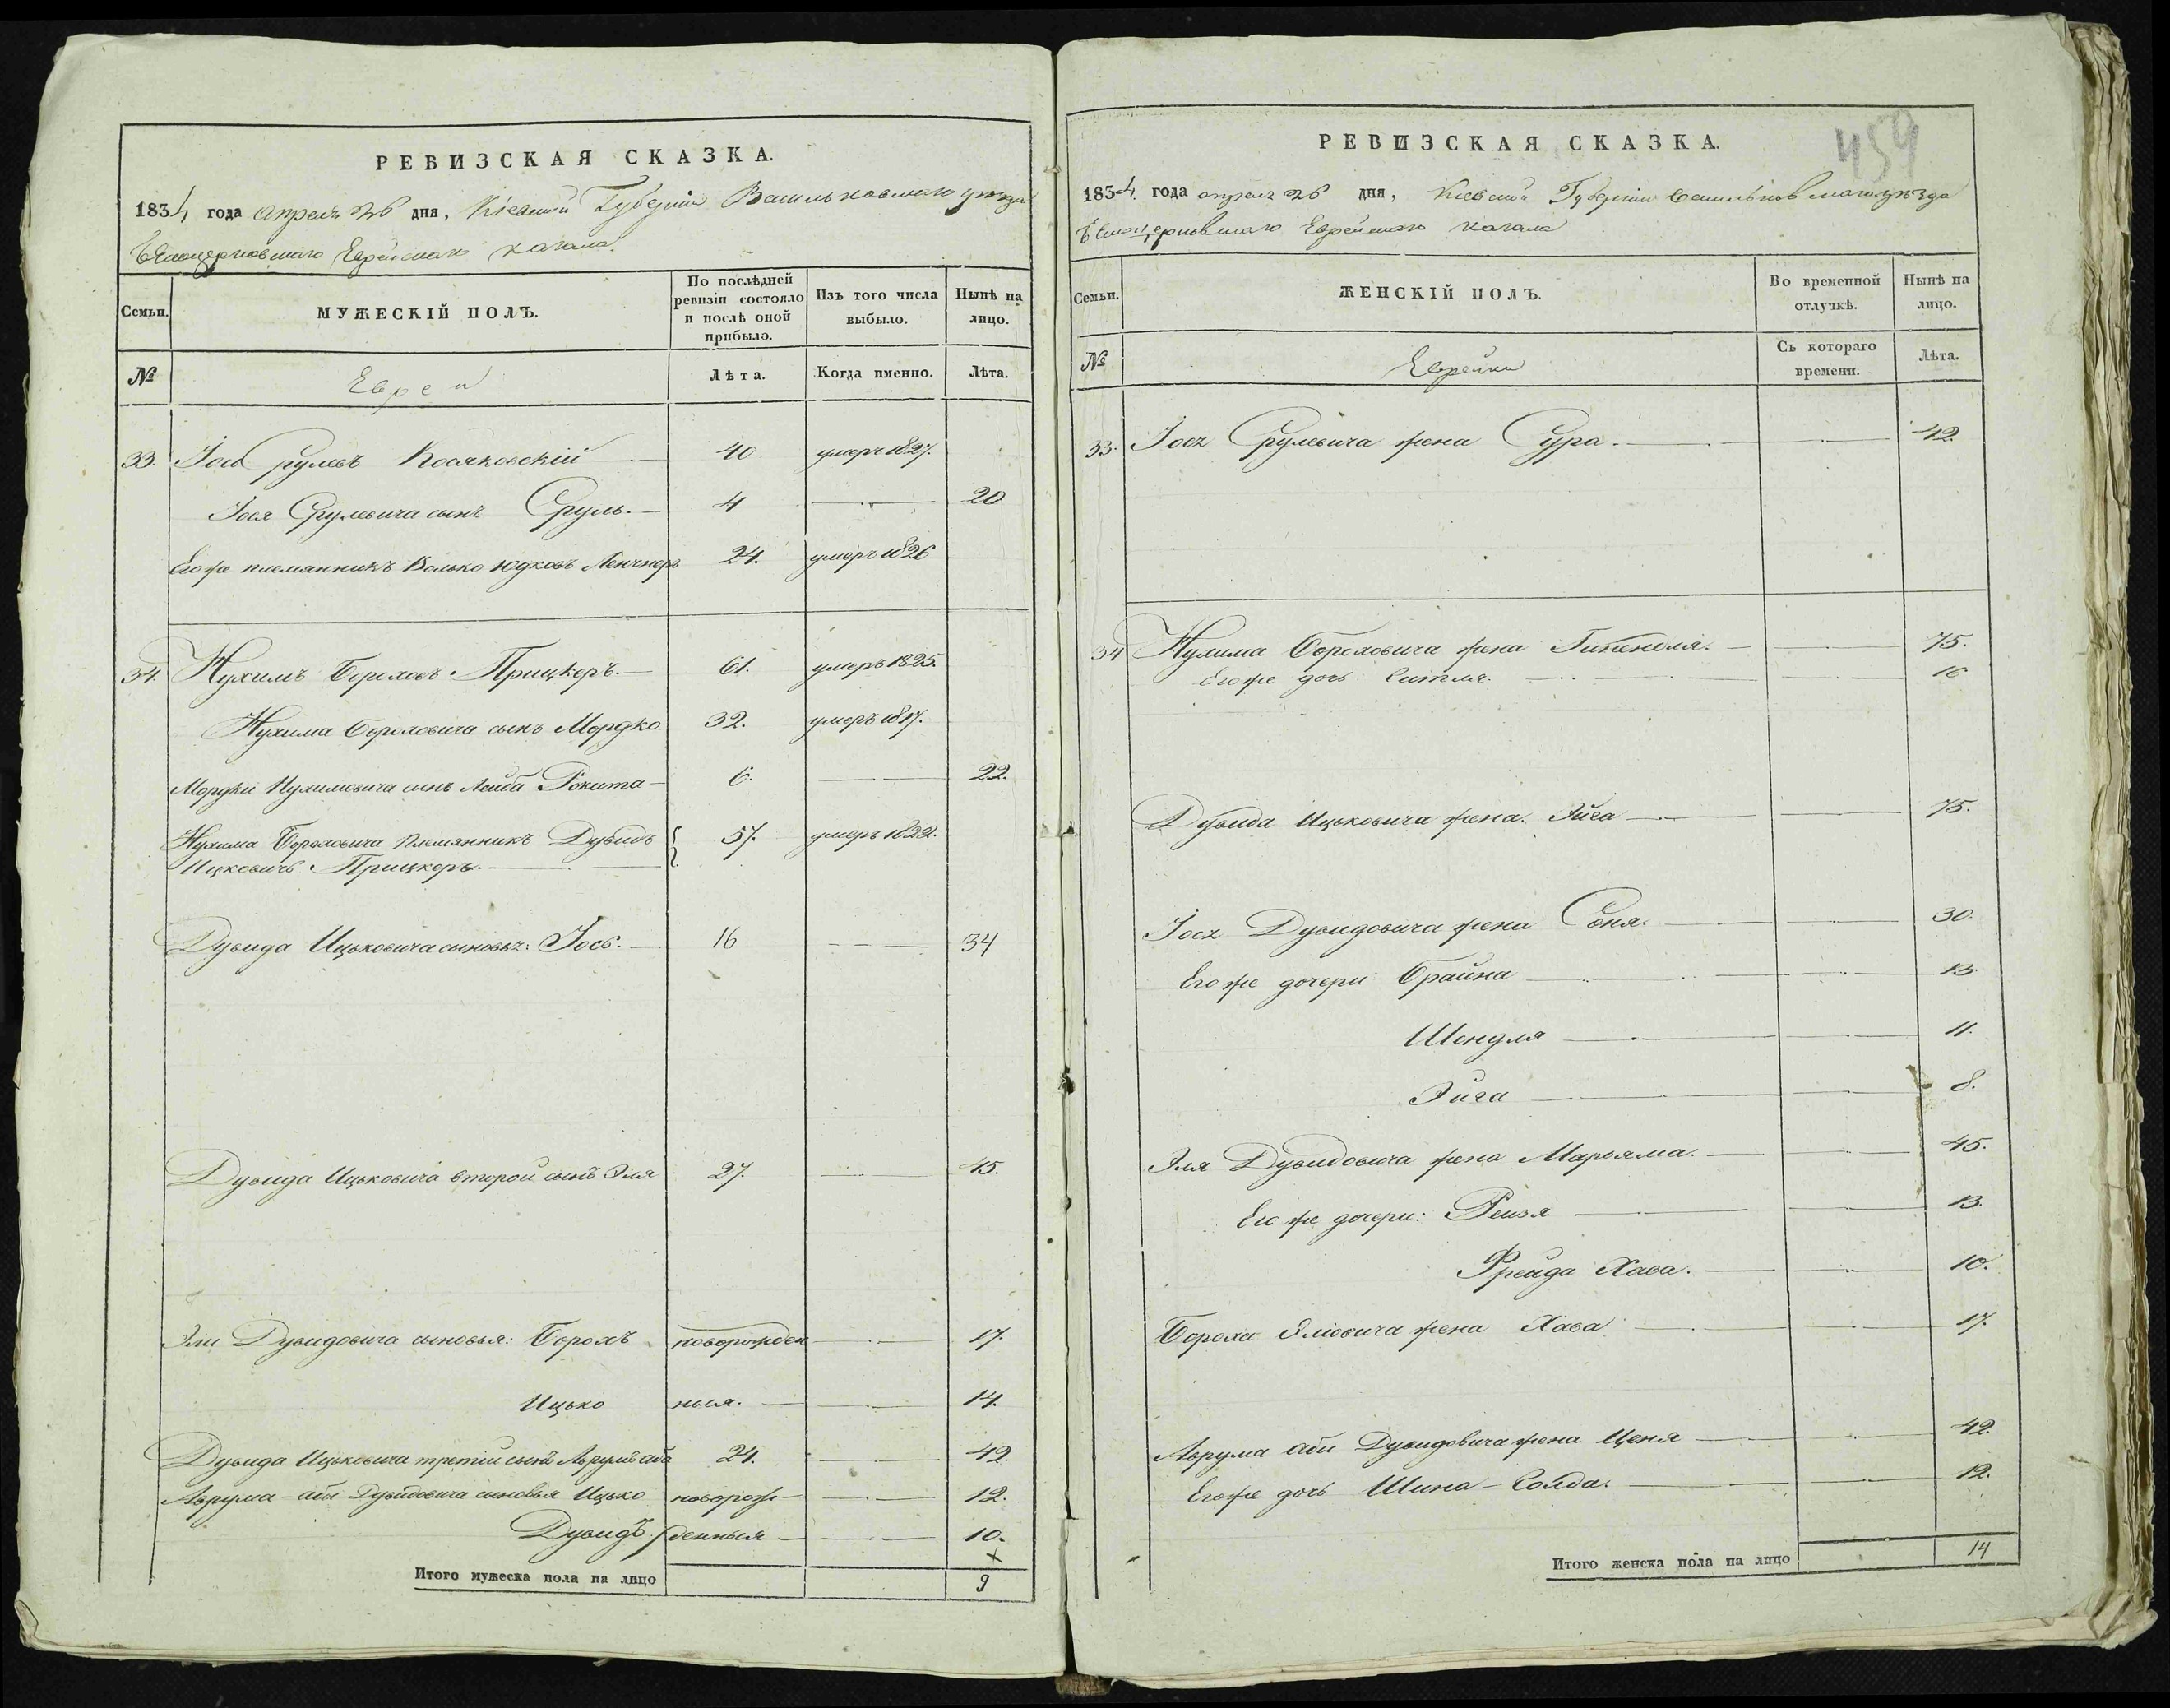 РЕВИЗСКАЯ СКАЗКА.
1834 года апреля 26 дня, Кіевской Губерніи Васильковскаго уезда
Белоцерковскаго Еврейскаго кагала.
Семьи.
МУЖЕСКІЙ ПОЛЪ.
По послѣдней ревизіи состояло и послѣ оной прибыло.
Изъ того числа выбыло.
Нынѣ на лицо.
№
Евреи
Лѣта.
Когда именно.
Лѣта.
33. Іось Срулевъ Косяковскій 40 умеръ 1827.
Іося Срулевича сынъ Сруль. 4 20
Его же племянникъ Волько Юдковъ 24. умеръ 1826
34. Нухимъ Бороховъ Прицкеръ. 61. умеръ 1825.
Нухима Бороховича сынъ Мордко 32. умеръ 1817.
Мордки Нухимовича сынъ Лейба Рокита 6. 22.
Нухима Бороховича племянникъ Дувидъ 57. умеръ 1822.
Ицковичъ Прицкеръ.
Дувида Ицьковича сыновья: Іось. 16 34
Дувида Ицьковича второй сынъ Эля 27. 45.
Эли Дувидовича сыновья: Борохъ новорожден 17.
Ицько ныя. 14.
Дувида Ицьковича третій сынъ Аврумъ аба 24. 42.
Аврума-абы Дувидовича сыновья Ицько новорож- 12.
Дувидъ денныя 10.
Итого мужеска пола на лицо 9
459
РЕВИЗСКАЯ СКАЗКА.
1834. года апреля 26 дня, Кіевской Губерніи Васильковскаго уѣзда
Белоцерковскаго Еврейскаго кагала
Семьи.
ЖЕНСКІЙ ПОЛЪ.
Во временной отлучкѣ.
Нынѣ на лицо.
№
Еврейки
Съ котораго времени.
Лѣта.
33. Іося Срулевича жена Сура. 42.
34 Нухима Бороховича жена 75.
Его же дочь 16
Дувида Ицьковича жена. 75.
Іося Дувидовича жена Соня. 30.
Его же дочери Брайна 13.
Шендля 11.
Эйга 8.
Эля Дувидовича жена Марьяма. 45.
Его же дочери: Рейзя 13.
Фрейда Хава. 10.
Бороха Элиовича жена Хава 17.
Аврума абы Дувидовича жена Ценя 42.
Его же дочь 12.
Итого женска пола на лицо 14